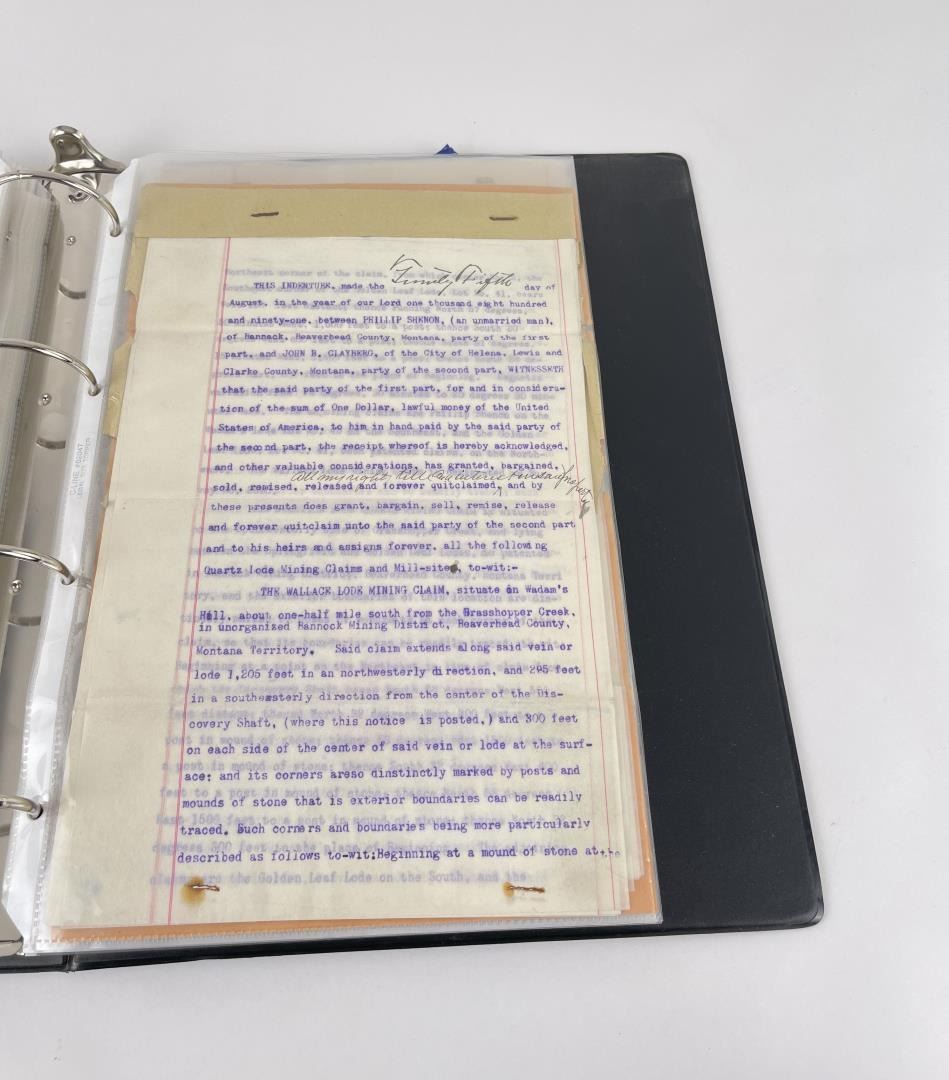 THIS INDENTURE, made the Twenty Fifth day of
August, in the year of our Lord one thousand eight hundred
and ninety-one, between PHILLIP SHENON, (an unmarried man),
of Bannack, Beaverhead County, Montana, party of the first
part, and JOHN B. CLAYBERG, of the City of Helena, Lewis and
Clarke County, Montana, party of the second part, WITNESSETH
that the said party of the first part, for and in considera-
tion of the sum of One Dollar, lawful money of the United
States of America, to him in hand paid by the said party of
the second part, the receipt whereof is hereby acknowledged,
and other valuable considerations, has granted, bargained,
all my right title and interest in said property
sold, remised, released and forever quitclaimed, and by
these presents does grant, bargain, sell, remise, release
and forever quitclaim unto the said party of the second part
and to his heirs and assigns forever, all the following
Quartz Lode Mining Claims and Mill-sites, to-wit:-
THE WALLACE LODE MINING CLAIM, situate on Wadam's
Hill, about one-half mile south from the Grasshopper Creek,
in unorganized Bannock Mining District, Beaverhead County,
Montana Territory. Said claim extends along said vein or
lode 1,205 feet in an northwesterly direction, and 295 feet
in a southeasterly direction from the center of the Dis-
covery Shaft, (where this notice is posted,) and 300 feet
on each side of the center of said vein or lode at the surf-
ace; and its corners areso dinstinctly marked by posts and
mounds of stone that is exterior boundaries can be readily
traced. Such corners and boundaries being more particularly
described as follows to-wit:Beginning at a mound of stone at the
the Golden Leaf Lode on the South, and the